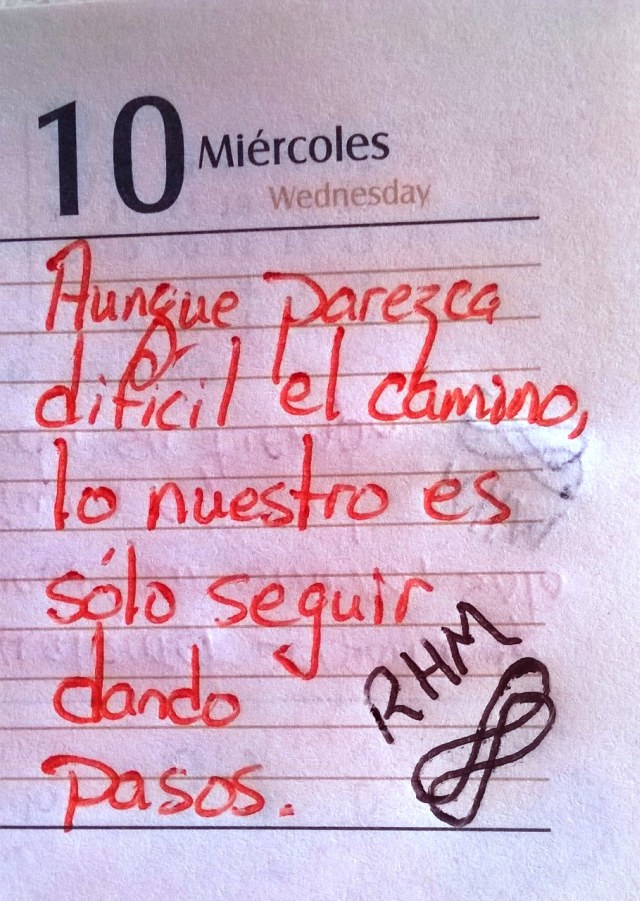 10 Miércoles
Wednesday
Aunque parezca
difícil el camino,
lo nuestro es
sólo seguir
dando
pasos.
RHM